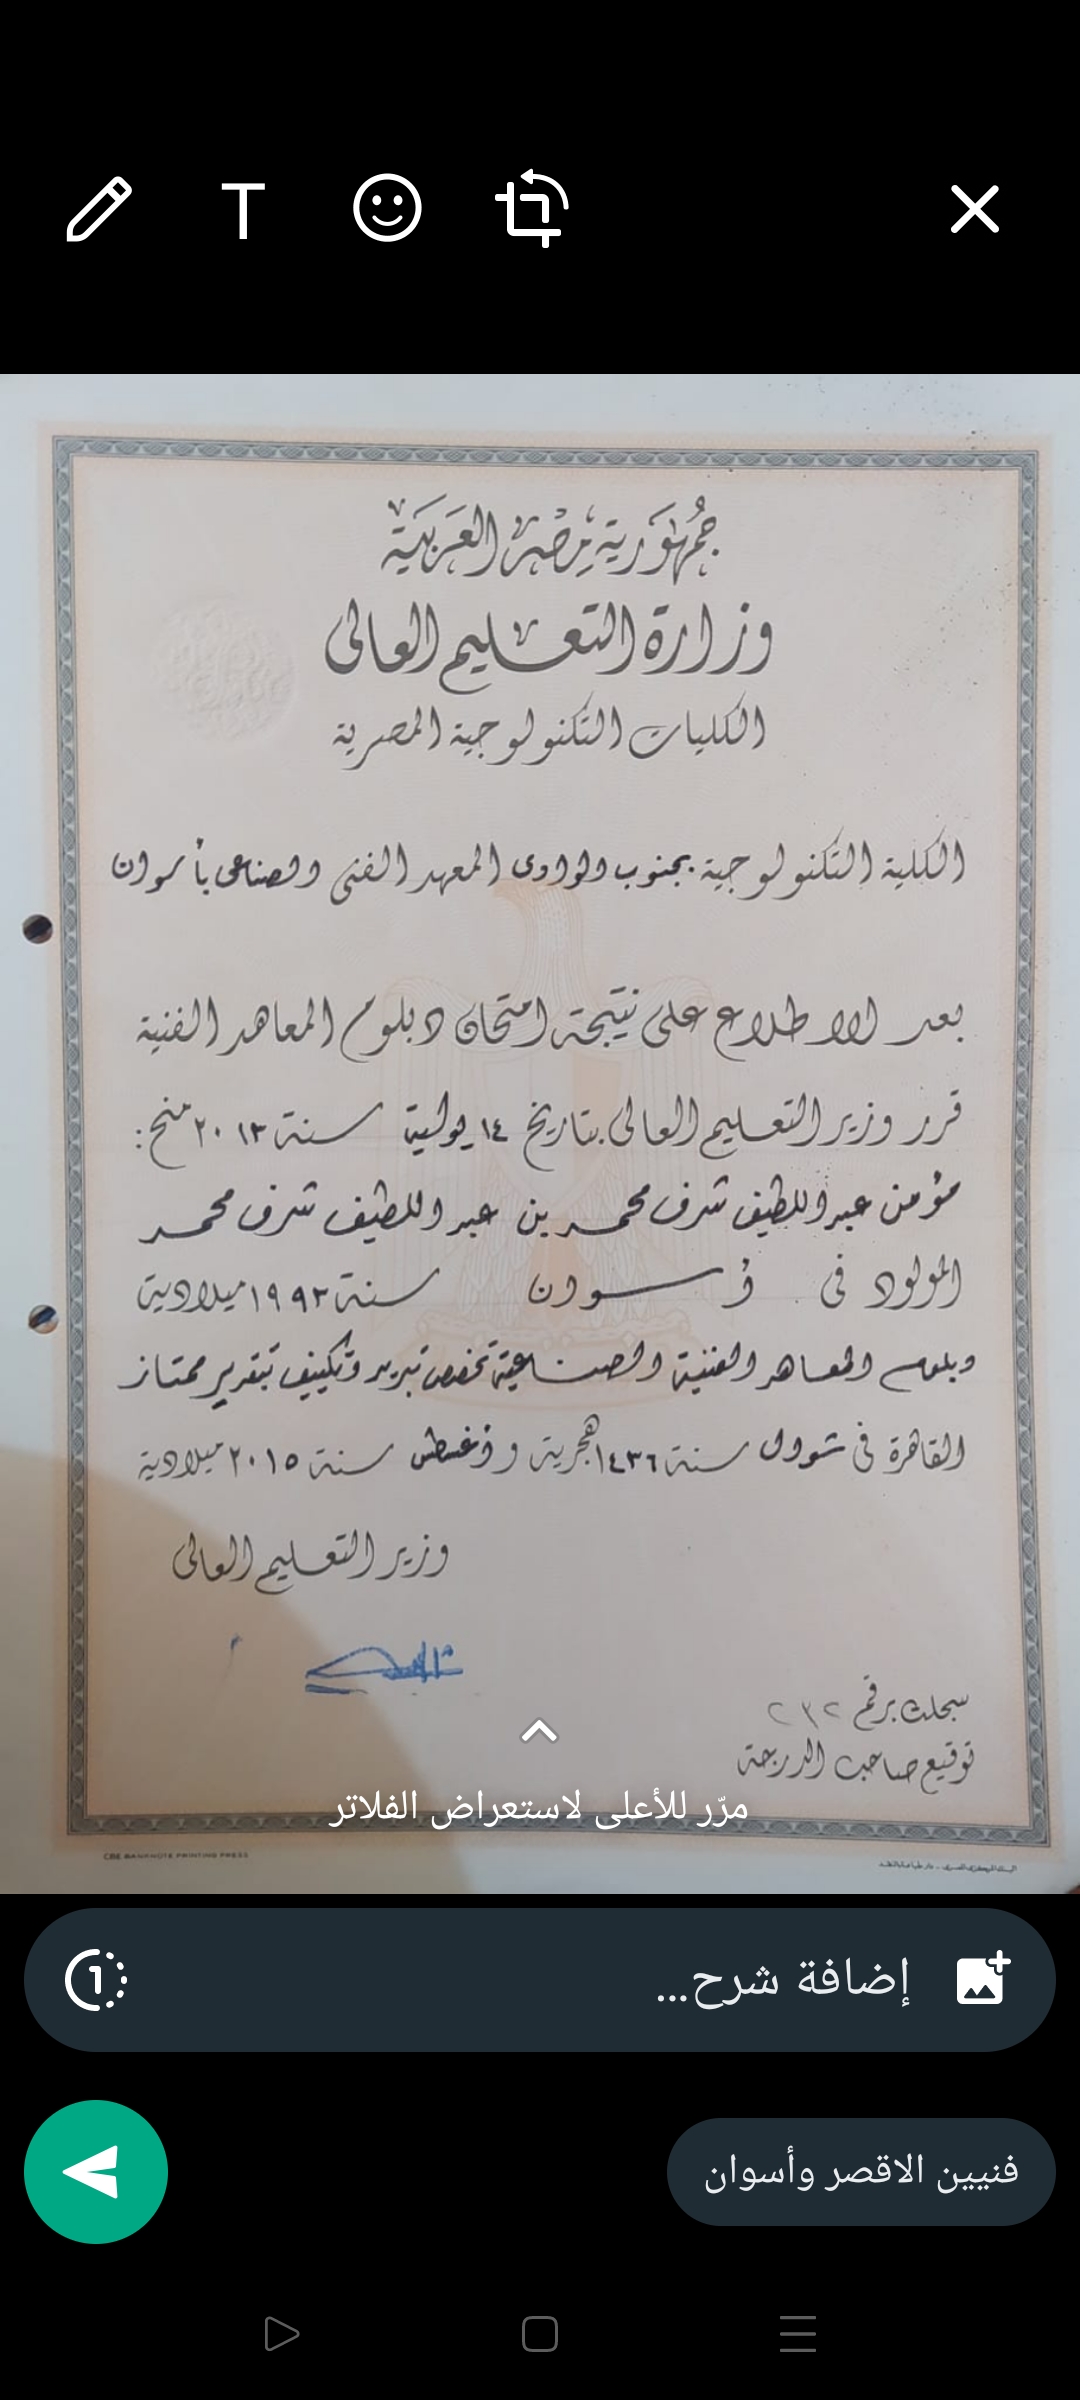 T
جمهورية مصر العربية
وزارة التعليم العالى
الكليات التكنولوجية المصرية
الكلية التكنولوجية بجنوب الوادى المعهد الفنى الصناعى بأسوان
بعد الاطلاع على نتيجة امتحان دبلوم المعاهد الفنية
قرر وزير التعليم العالى بتاريخ ١٤ يولية سنة ٢٠١٣ منح:
مؤمن عبد اللطيف شرف محمد بن عبد اللطيف شرف محمد
المولود فى أسوان سنة ١٩٩٢ ميلادية
دبلوم المعاهد الفنية الصناعية تخصص تبريد وتكييف بتقدير ممتاز
القاهرة فى شوال سنة ١٤٣٦ هجرية و أغسطس سنة ٢٠١٥ ميلادية
وزير التعليم العالى
سجلت برقم ٢٣٢
توقيع صاحب الدرجة
مرّر للأعلى لاستعراض الفلاتر
CBE BANKNOTE PRINTING PRESS
البنك المركزى المصرى - دار طباعة النقد
إضافة شرح...
1
فنيين الاقصر وأسوان